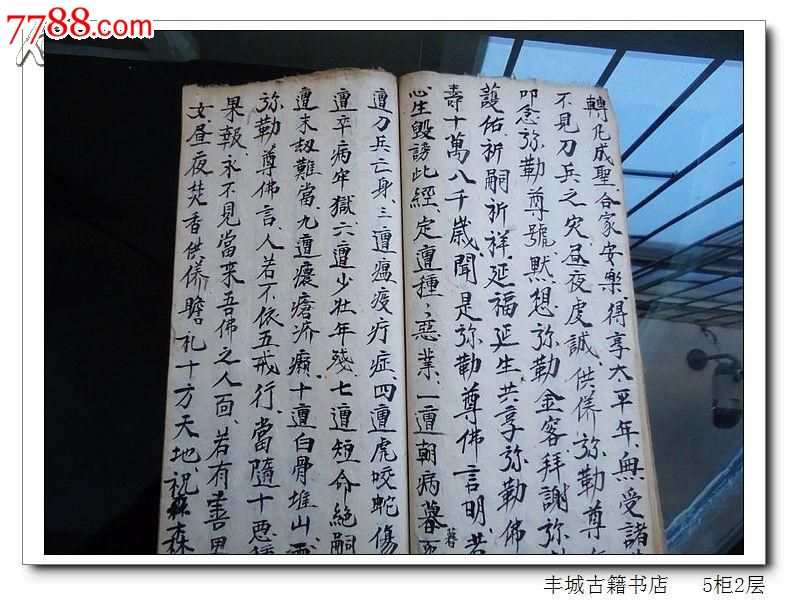 7788.com
轉凡成聖合家安樂得享太平年無受諸
不見刀兵之灾昼夜虔誠供養弥勒尊
叩念弥勒尊號默想弥勒金容拜謝弥
護佑祈嗣祈祥延福延生共享弥勒佛
壽十萬八千歲聞是弥勒尊佛言明若
心生毀謗此經定遭種々惡業一遭朝病暮
暮
遭刀兵亡身三遭瘟疫疔症四遭虎咬蛇傷
遭卒病牢獄六遭少壯年殘七遭短命絕嗣
遭末劫難當九遭癀瘡疥癩十遭白骨堆山
弥勒尊佛言人若不依五戒行當隨十惡
果報永不見當來吾佛之人面若有善男
女昼夜焚香供養瞻礼十方天地祝
丰城古籍书店 5柜2层